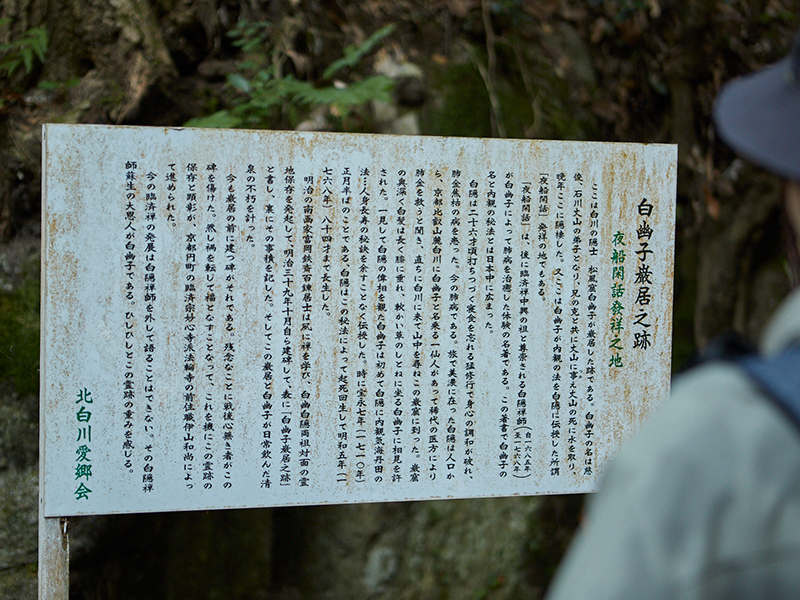 白幽子巌居之跡
夜船閑話發祥之地
ここは白川の隠士 松風窟白幽子が巌居した跡である。白幽子の名は慈
俊、石川丈山の弟子となり、兄の克と共に丈山に事え丈山の死に水を取り、
晩年ここに隠棲した。又ここは白幽子が内観の法を白隠に伝授した所謂
「夜船閑話」発祥の地でもある。
「夜船閑話」は、後に臨済禅中興の祖と尊崇される白隠禅師(自一六八五年 至一七六八年)
が白幽子によって肺病を治癒した体験の名著である。この著書で白幽子の
名と内観の秘法とは日本中に広まった。
白隠は二十六才頃打ちつづく寝食を忘れる猛修行で身心の調和が破れ、
肺金焦枯の病を患った。今の肺病である。旅で美濃に在った白隠は人口か
ら、京都比叡山麓白川に白幽子と名乗る一仙人があって稀代の医方により
肺金を救うと聞き、直ちに白川に来て山中を尋ねこの巌窟に到った。巌窟
の奥深く白髪は長く膝に垂れ、軟かい草のしとねに坐る白幽子に相見を許
された。一見して白隠の偉相を観た白幽子は初めて白隠に内観気海丹田の
法…人身長寿の秘訣を余すことなく伝授した。時に宝永七年(一七一〇年)
正月半ばのことである。白隠はこの秘法によって起死回生して明和五年(一
七六八年)八十四才まで長生した。
明治の南画家富岡鉄斎百錬居士は夙に禅を学び、白幽白隠両祖対面の霊
地保存を発起して、明治三十九年十月自ら建碑して、表に「白幽子巌居之跡」
と書し、裏にその事積を記した。そしてこの巌居と白幽子が日常飲んだ清
泉の不朽を計った。
今も巌居の前に建つ碑がそれである。残念なことに戦後心無き者がこの
碑を傷けた。然し禍を転じて福となすこととなって、これを機にこの霊跡の
保存と顕彰が、京都円町の臨済宗妙心寺派法輪寺の前住職伊山和尚によっ
て進められた。
今の臨済禅の発展は白隠禅師を外して語ることはできない。その白隠禅
師蘇生の大恩人が白幽子である。ひしひしとこの霊跡の重みを感じる。
北白川愛郷会